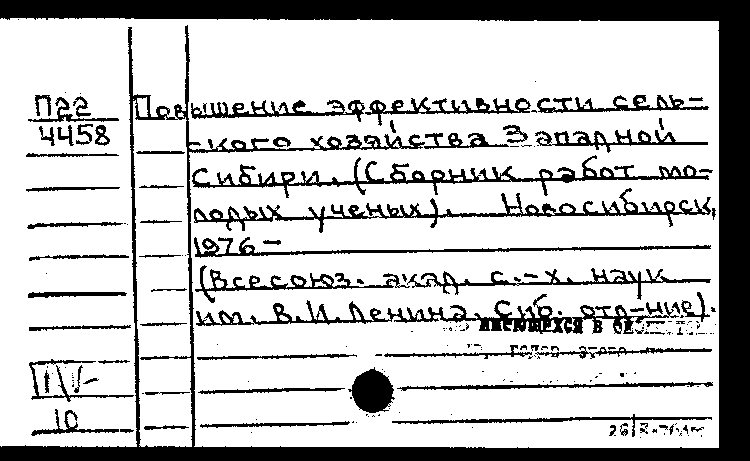 П22
4458
Повышение эффективности сель-
-кого хозяйства Западной
Сибири. (Сборник работ мо-
лодых ученых). Новосибирск,
1976 -
(Всесоюз. акад. с.-х. наук
им. В.И. Ленина. Сиб. отд-ние).
ИМЕЮЩИХСЯ В
годов этого
10
26